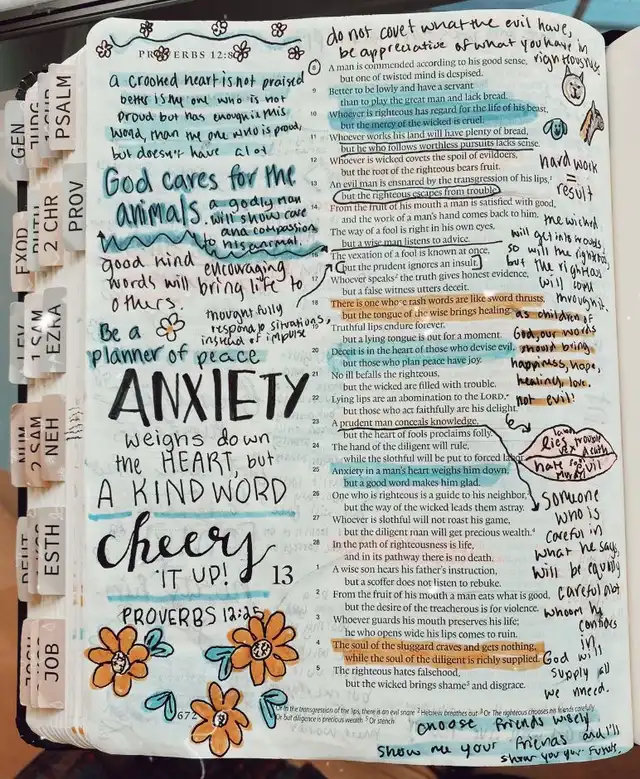 PROVERBS 12:8
a crooked heart is not praised
better is the one who is not
proud but has enough in this
world, than the one who is proud,
but doesn't have a lot
God cares for the
animals. a godly man
will show care
and compassion
to his animal.
good kind encouraging
words will bring life to
others.
thoughtfully
respond to situations,
instead of impulse
Be a
planner of peace
ANXIETY
weighs down
the HEART, but
A KIND WORD
cheers
IT UP!
PROVERBS 12:25
672
do not covet what the evil have,
be appreciative of what you have in
righteousness
8 A man is commended according to his good sense,
but one of twisted mind is despised.
9 Better to be lowly and have a servant
than to play the great man and lack bread.
10 Whoever is righteous has regard for the life of his beast,
but the mercy of the wicked is cruel.
11 Whoever works his land will have plenty of bread,
but he who follows worthless pursuits lacks sense.
12 Whoever is wicked covets the spoil of evildoers,
but the root of the righteous bears fruit.
13 An evil man is ensnared by the transgression of his lips,
but the righteous escapes from trouble.
14 From the fruit of his mouth a man is satisfied with good,
and the work of a man's hand comes back to him.
15 The way of a fool is right in his own eyes,
but a wise man listens to advice.
16 The vexation of a fool is known at once,
but the prudent ignores an insult.
17 Whoever speaks the truth gives honest evidence,
but a false witness utters deceit.
18 There is one whose rash words are like sword thrusts,
but the tongue of the wise brings healing.
19 Truthful lips endure forever,
but a lying tongue is but for a moment.
20 Deceit is in the heart of those who devise evil,
but those who plan peace have joy.
21 No ill befalls the righteous,
but the wicked are filled with trouble.
22 Lying lips are an abomination to the LORD,
but those who act faithfully are his delight.
23 A prudent man conceals knowledge,
but the heart of fools proclaims folly.
24 The hand of the diligent will rule,
while the slothful will be put to forced labor.
25 Anxiety in a man's heart weighs him down,
but a good word makes him glad.
26 One who is righteous is a guide to his neighbor,
but the way of the wicked leads them astray.
27 Whoever is slothful will not roast his game,
but the diligent man will get precious wealth.
28 In the path of righteousness is life,
and in its pathway there is no death.
13
1 A wise son hears his father's instruction,
but a scoffer does not listen to rebuke.
2 From the fruit of his mouth a man eats what is good,
but the desire of the treacherous is for violence.
3 Whoever guards his mouth preserves his life;
he who opens wide his lips comes to ruin.
4 The soul of the sluggard craves and gets nothing,
while the soul of the diligent is richly supplied.
5 The righteous hates falsehood,
but the wicked brings shame and disgrace.
in the transgression of the lips, there is an evil snare 2 Hebrew breathes out 3 Or The righteous chooses his friends carefully
Or but diligence is precious wealth 5 Or stench
hard work
=
result
the wicked
will get into trouble,
so will the righteous
but the righteous
will come
through it.
as children of
God, our words
should bring
happiness, hope,
healing, love.
not evil!
lies trouble
death
hate
evil
someone
who is
careful in
what he says,
will be equally
careful about
whom he
confides
in
God will
supply all
we need.
choose friends wisely
show me your friends and I'll
show you your future.
GEN
EXOD
LEV
NUM
DEUT
JOSH
JUDG
RUTH
1 SAM
2 SAM
1 CHR
2 CHR
EZRA
NEH
ESTH
JOB
PSALM
PROV